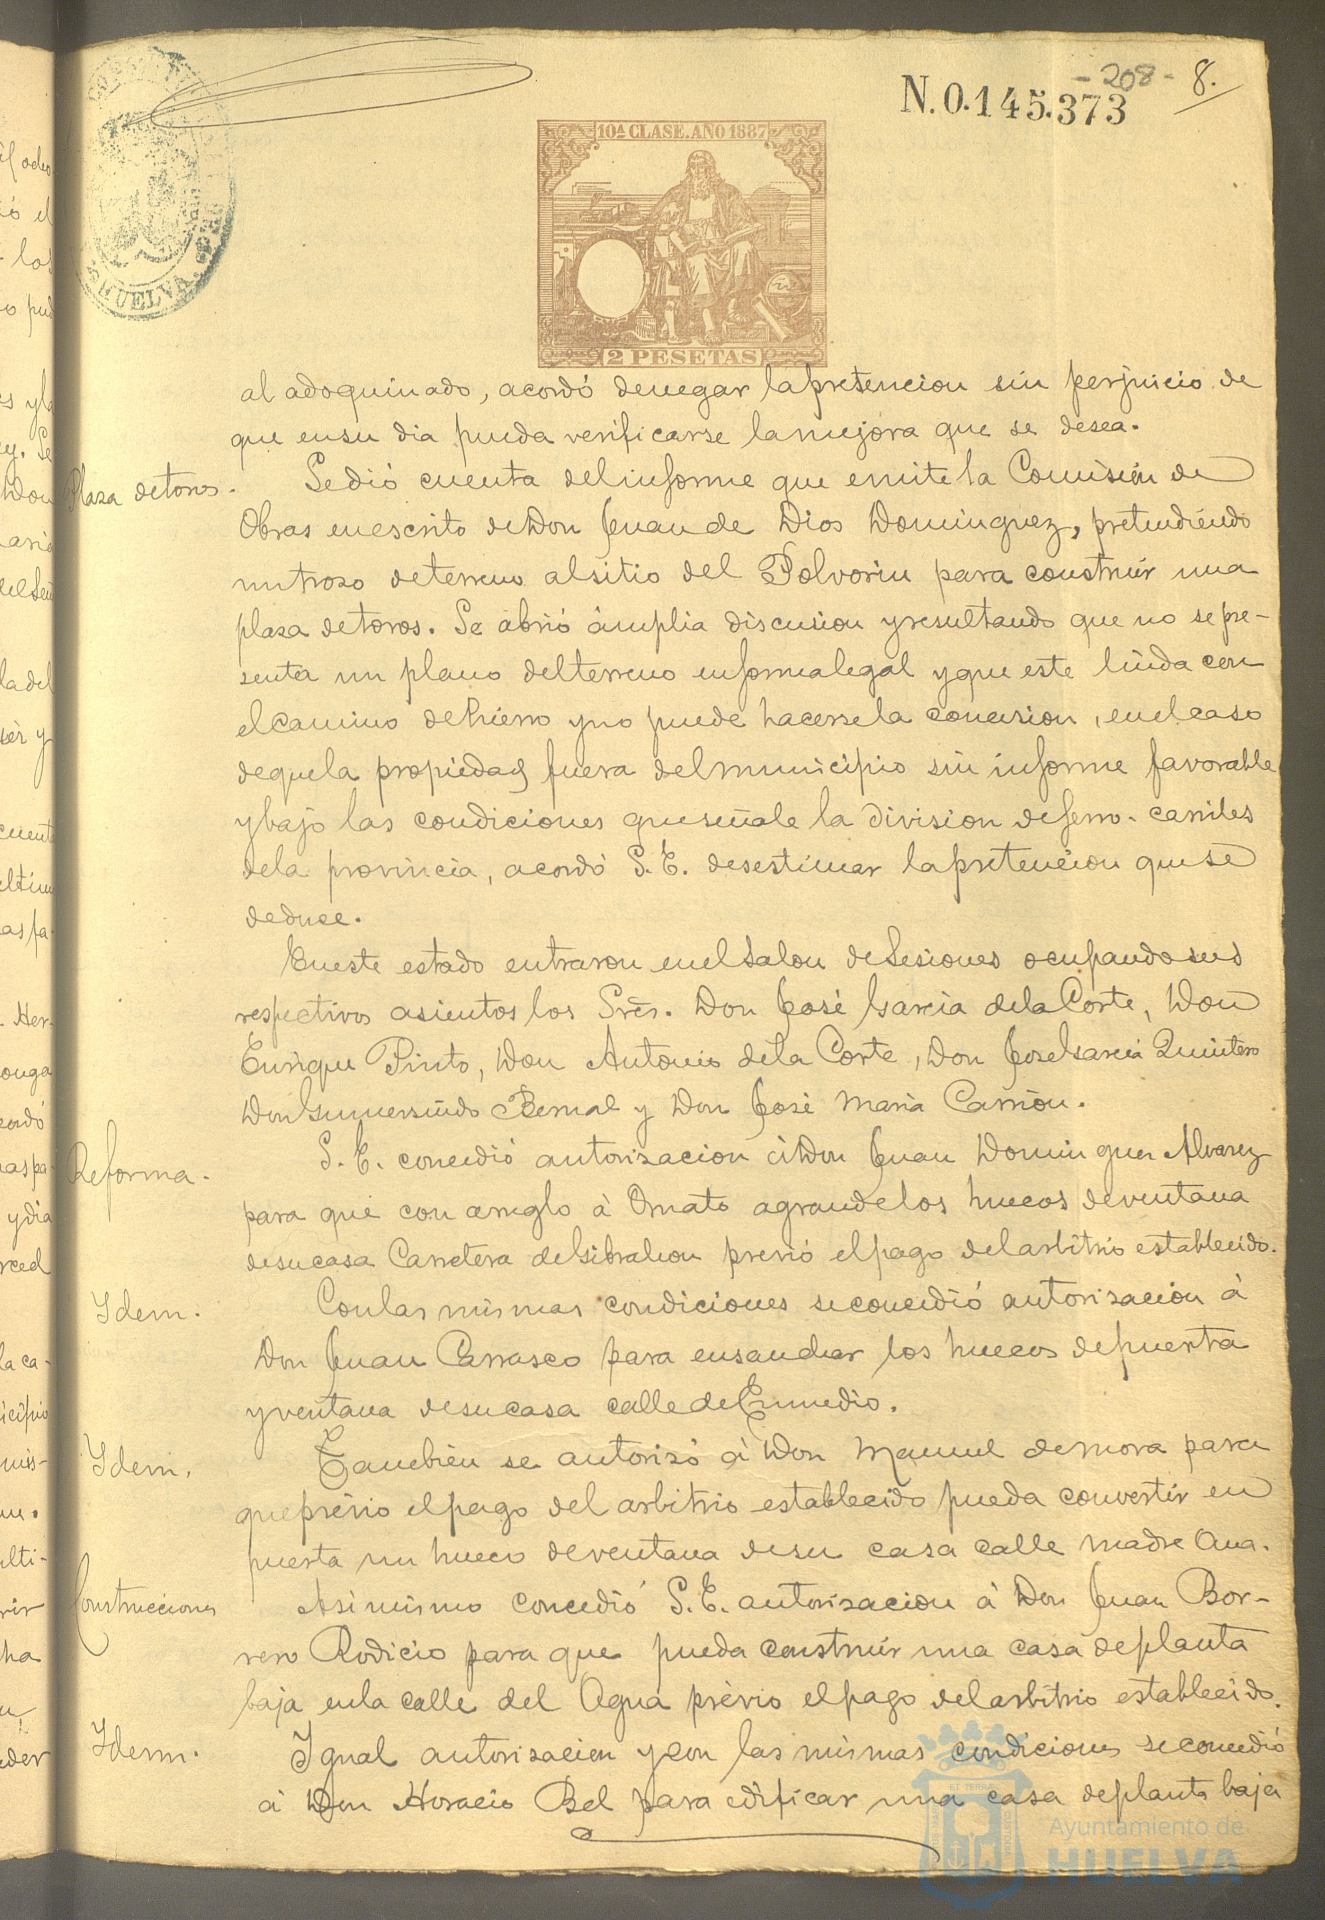 - 208 -
8.
N.0.145.373
10ª CLASE. AÑO 1887
2 PESETAS
HUELVA
al adoquinado, acordó denegar la pretencion sin perjuicio de
que en su dia pueda verificarse la mejora que se desea.
Plaza de toros.
Se dió cuenta del informe que emite la Comisión de
Obras en escrito de Don Juan de Dios Dominguez, pretendiendo
un trozo de terreno al sitio del Polvorin para construir una
plaza de toros. Se abrió ámplia discusion y resultando que no se pre-
senta un plano del terreno en forma legal y que este linda con
el camino de hierro y no puede hacerse la concesion, en el caso
de que la propiedad fuera del municipio sin informe favorable
y bajo las condiciones que señale la division de ferro-carriles
de la provincia, acordó S. E. desestimar la pretencion que se
deduce.
En este estado entraron en el Salon de Sesiones ocupando sus
respectivos asientos los Sres. Don José Garcia de la Corte, Don
Enrique Pinto, Don Antonio de la Corte, Don José Garcia Quintero
Don Gumersindo Bernal y Don José Maria Carrión.
Reforma.
S. E. concedió autorizacion á Don Juan Dominguez Alvarez
para que con arreglo á Ornato agrande los huecos de ventana
de su casa Carretera de Gibraleon previo el pago del arbitrio establecido.
Ydem.
Con las mismas condiciones se concedió autorizacion á
Don Juan Carrasco para ensanchar los huecos de puerta
y ventana de su casa calle de Enmedio.
Ydem.
Tambien se autorizó á Don Manuel de Mora para
que prévio el pago del arbitrio establecido pueda convertir en
puerta un hueco de ventana de su casa calle Madre Ana.
Construcciones
Asimismo concedió S. E. autorizacion á Don Juan Bor-
rero Rodicio para que pueda construir una casa de planta
baja en la calle del Agua prévio el pago del arbitrio establecido.
Ydem.
Igual autorizacion y con las mismas condiciones se concedió
á Don Horacio Bel para edificar una casa de planta baja
Ayuntamiento de
HUELVA